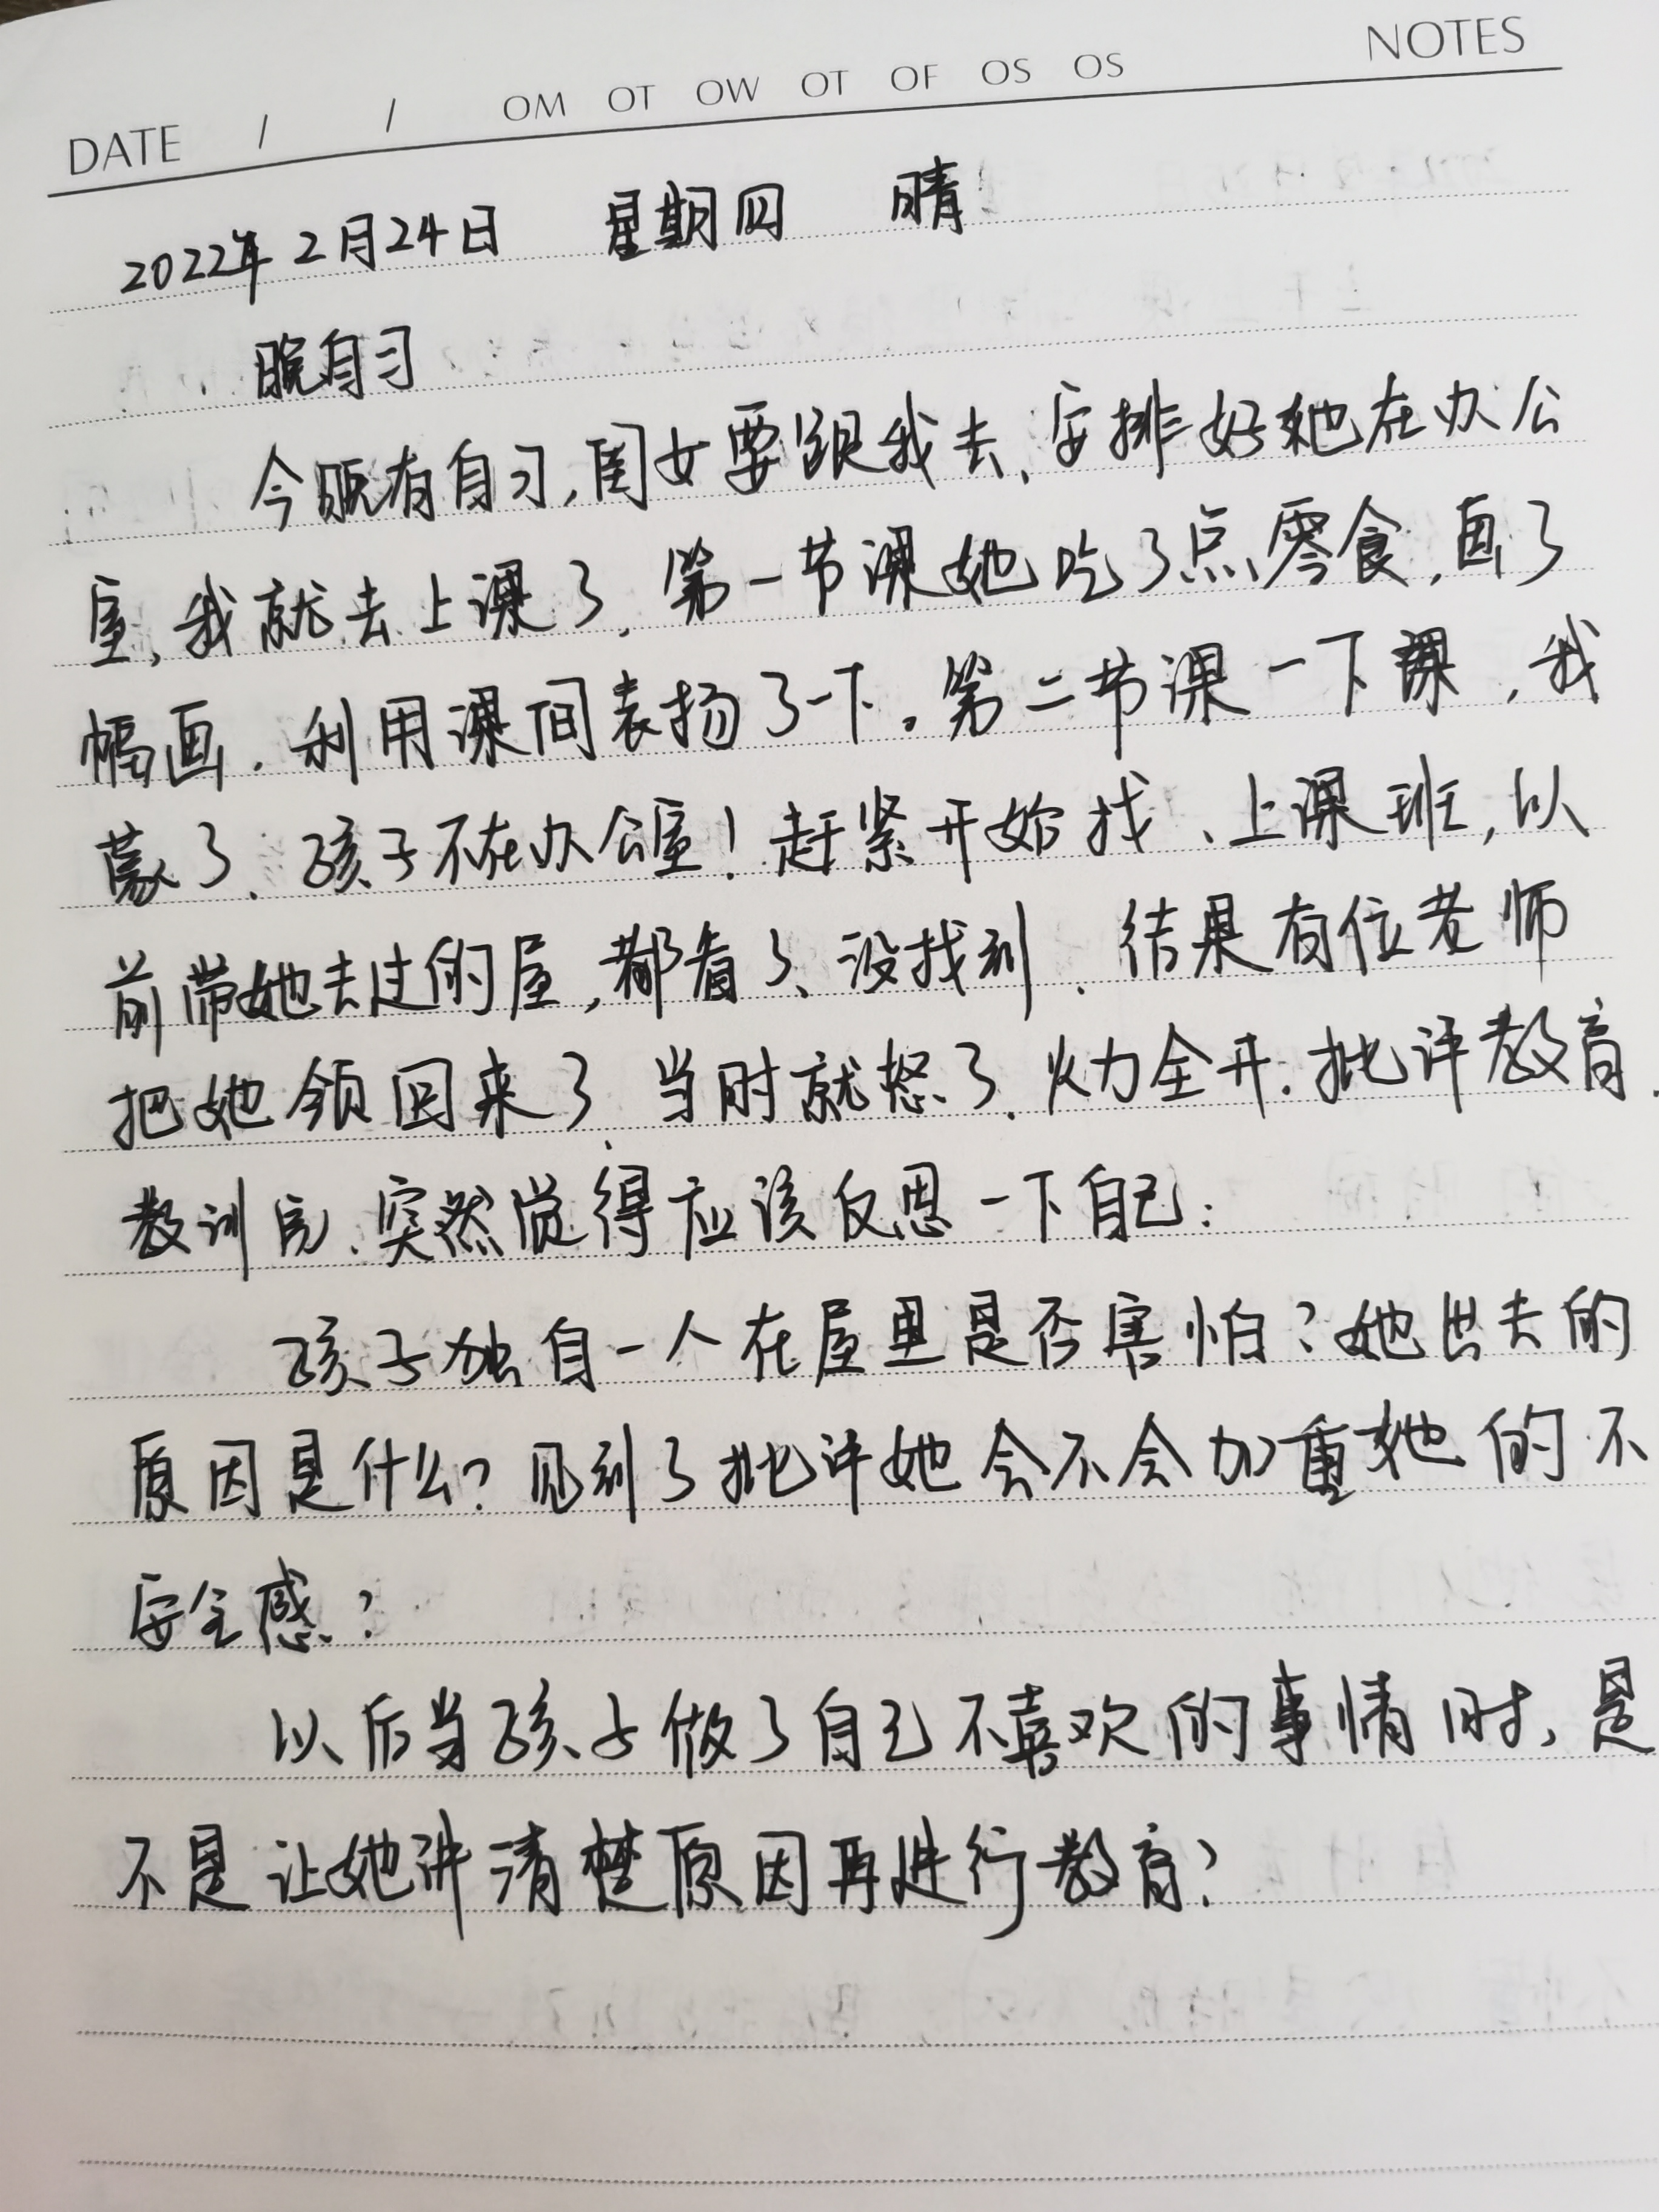 DATE / / OM OT OW OT OF OS OS NOTES
2022年2月24日 星期四 晴
晚自习
今晚有自习,闺女要跟我去,安排好她在办公
室,我就去上课了,第一节课她吃了点零食,画了
幅画.利用课间表扬了一下。第二节课一下课,我
蒙了、孩子不在办公室!赶紧开始找、上课班,以
前带她去过的屋,都看了、没找到.结果有位老师
把她领回来了,当时就怒了.火力全开.批评教育.
教训完、突然觉得应该反思一下自己:
孩子独自一人在屋里是否害怕?她出去的
原因是什么?见到了批评她会不会加重她的不
安全感?
以后当孩子做了自己不喜欢的事情时,是
不是让她讲清楚原因再进行教育?